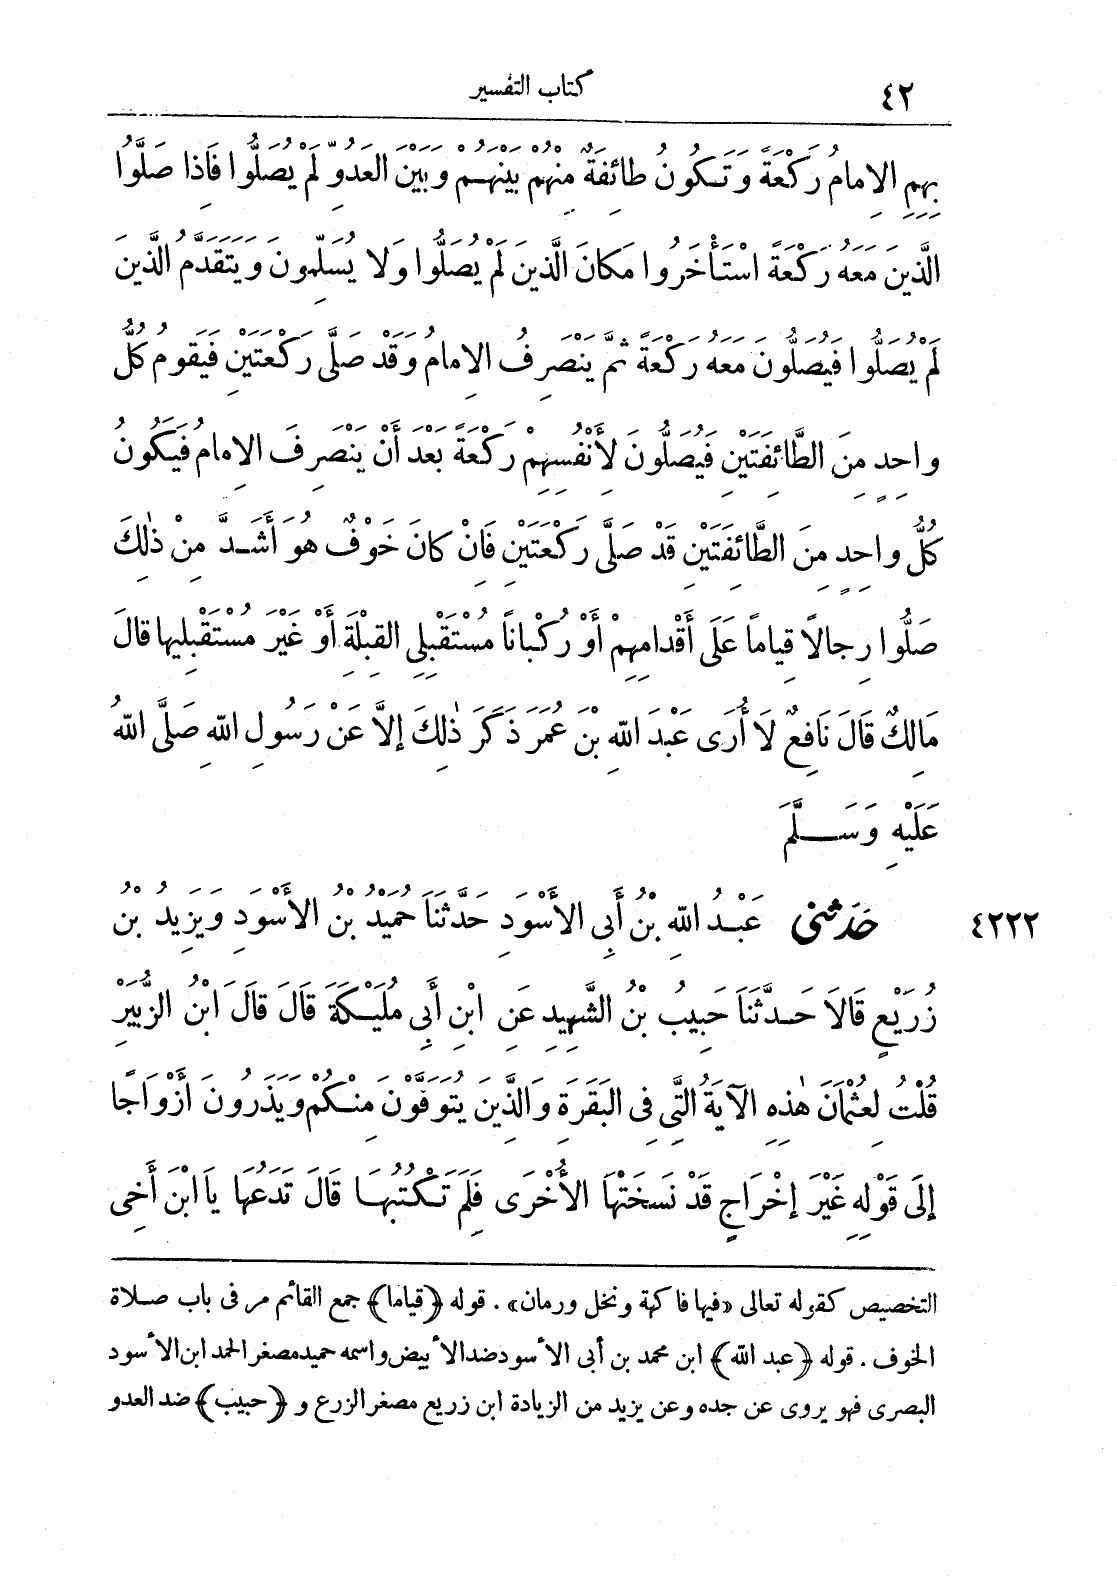 ٤٢
كتاب التفسير
بِهِمِ الإمامُ رَكْعَةً وَتَكُونُ طائِفَةٌ مِنْهُمْ بَيْنَهُمْ وَبَيْنَ العَدُوِّ لَمْ يُصَلُّوا فَإِذا صَلَّوُا
الَّذِينَ مَعَهُ رَكْعَةً اسْتَأْخَرُوا مَكانَ الَّذِينَ لَمْ يُصَلُّوا وَلا يُسَلِّمُونَ وَيَتَقَدَّمُ الَّذِينَ
لَمْ يُصَلُّوا فَيُصَلُّونَ مَعَهُ رَكْعَةً ثُمَّ يَنْصَرِفُ الإمامُ وَقَدْ صَلَّى رَكْعَتَيْنِ فَيَقُومُ كُلُّ
واحِدٍ مِنَ الطَّائِفَتَيْنِ فَيُصَلُّونَ لِأَنْفُسِهِمْ رَكْعَةً بَعْدَ أَنْ يَنْصَرِفَ الإمامُ فَيَكُونُ
كُلُّ واحِدٍ مِنَ الطَّائِفَتَيْنِ قَدْ صَلَّى رَكْعَتَيْنِ فَإنْ كانَ خَوْفٌ هُوَ أَشَدَّ مِنْ ذٰلِكَ
صَلُّوا رِجالاً قِياماً عَلَى أَقْدامِهِمْ أَوْ رُكْباناً مُسْتَقْبِلِى القِبْلَةِ أَوْ غَيْرَ مُسْتَقْبِلِيها قالَ
مَالِكٌ قَالَ نَافِعٌ لَا أُرَى عَبْدَ اللّهِ بْنَ عُمَرَ ذَكَرَ ذٰلِكَ إلاَّ عَنْ رَسُولِ اللّهِ صَلَّى اللّهُ
عَلَيْهِ وَسَلَّمَ
٤٢٢٢ حَدَّثَنِى عَبْدُ اللّهِ بْنُ أَبِى الأَسْوَدِ حَدَّثَنَا حُمَيْدُ بْنُ الأَسْوَدِ وَيَزِيدُ بْنُ
زُرَيْعٍ قَالَا حَدَّثَنَا حَبِيبُ بْنُ الشَّهِيدِ عَنِ ابْنِ أَبِى مُلَيْكَةَ قَالَ قَالَ ابْنُ الزُّبَيْرِ
قُلْتُ لِعُثْمَانَ هٰذِهِ الآيَةُ الَّتِى فِى البَقَرَةِ وَالَّذِينَ يُتَوَفَّوْنَ مِنْكُمْ وَيَذَرُونَ أَزْوَاجًا
إِلَى قَوْلِهِ غَيْرَ إخْرَاجٍ قَدْ نَسَخَتْهَا الأُخْرَى فَلِمَ تَكْتُبُهَا قَالَ تَدَعُهَا يَا ابْنَ أَخِى
التخصيص كقوله تعالى «فيها فاكهة ونخل ورمان» . قوله ﴿قياما﴾ جمع القائم مر فى باب صلاة
الخوف . قوله ﴿عبد الله﴾ ابن محمد بن أبى الأسود ضد الأبيض واسمه حميد مصغر الحمد ابن الأسود
البصرى فهو يروى عن جده وعن يزيد من الزيادة ابن زريع مصغر الزرع و ﴿حبيب﴾ ضد العدو